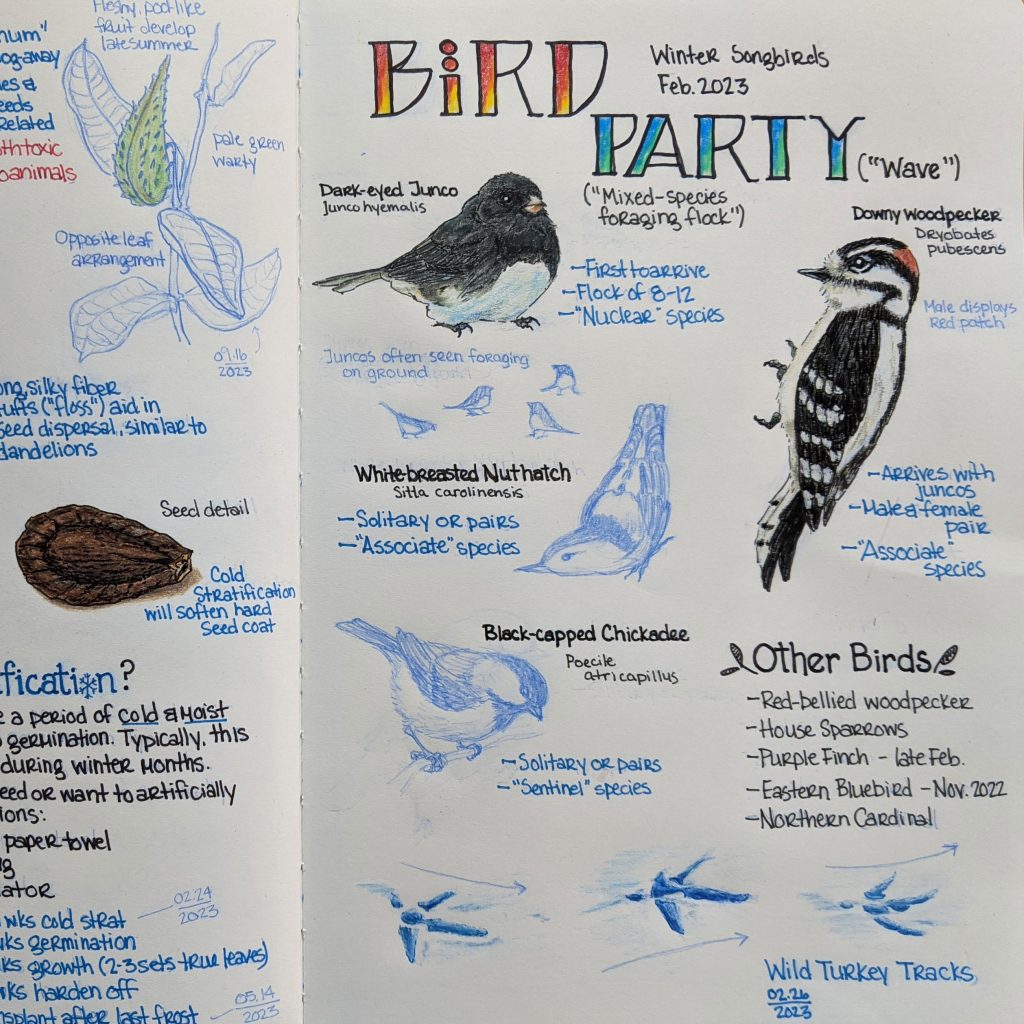 Fleshy, pod-like
fruit develop
late summer
pale green
warty
Opposite leaf
arrangement
09.16
2023
num"
og-away
es &
eeds
Related
oth toxic
o animals
ong, silky fiber
tufts ("floss") aid in
seed dispersal, similar to
dandelions
Seed detail
Cold
Stratification
will soften hard
seed coat
ification?
e a period of cold & moist
germination. Typically, this
during winter months.
eed or want to artificially
ions:
paper towel
g
ator
wks cold strat
02.24
2023
wks germination
ks growth (2-3 sets true leaves)
wks harden off
nsplant after last frost
05.14
2023
BiRD
Winter Songbirds
Feb. 2023
PARTY
("Wave")
("Mixed-species
foraging flock")
Dark-eyed Junco
Junco hyemalis
-First to arrive
-Flock of 8-12
-"Nuclear" species
Juncos often seen foraging
on ground
Downy Woodpecker
Dryobates
pubescens
Male displays
Red patch
-Arrives with
juncos
-Male & female
pair
-"Associate"
species
White-breasted Nuthatch
Sitta carolinensis
-Solitary or pairs
-"Associate" species
Black-capped Chickadee
Poecile
atricapillus
-Solitary or pairs
-"Sentinel" species
Other Birds
-Red-bellied woodpecker
-House Sparrows
-Purple Finch - late Feb.
-Eastern Bluebird - Nov. 2022
-Northern Cardinal
Wild Turkey Tracks
02.26
2023